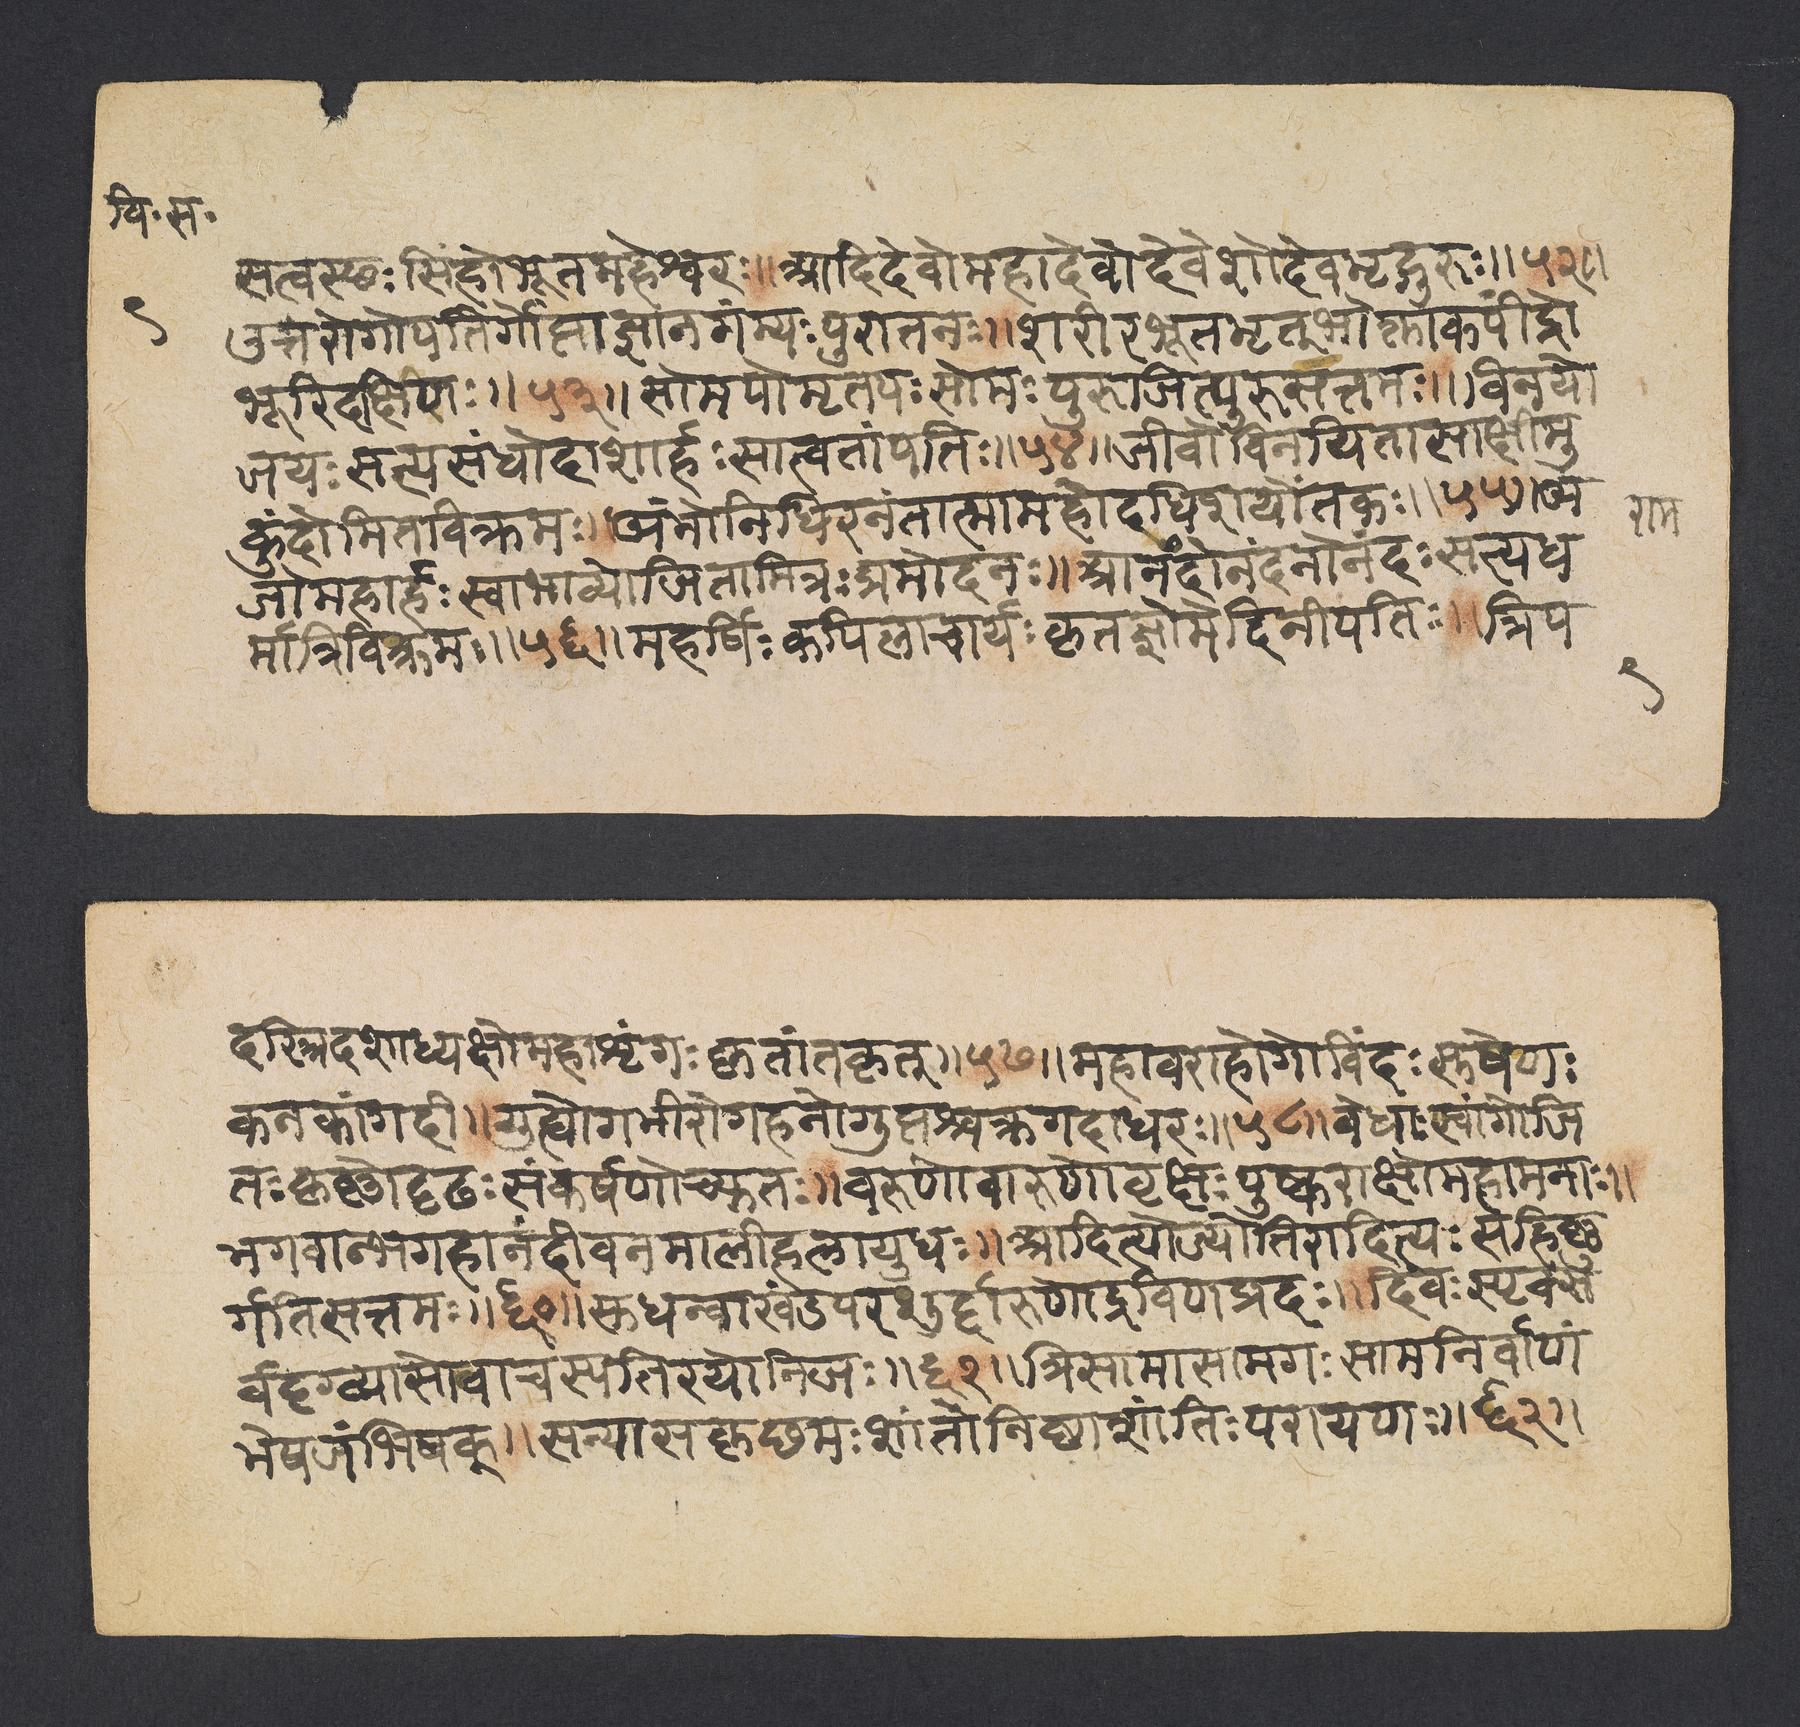 वि॰स॰
९
सत्वस्थः सिंहोभूतमहेश्वरः॥ आदिदेवोमहादेवोदेवेशोदेवभृद्गुरुः॥५२॥
उत्तरोगोपतिर्गोप्ताज्ञानगम्यःपुरातनः॥ शरीरभूतभृद्भोक्ताकपींद्रो
भूरिदक्षिणः॥५३॥ सोमपोमृतपःसोमः पुरुजित्पुरुसत्तमः॥ विनयो
जयःसत्यसंधोदाशार्हःसात्वतांपतिः॥५४॥ जीवोविनयितासाक्षीमु
कुंदोमितविक्रमः॥ अंभोनिधिरनंतात्मामहोदधिशयोंतकः॥५५॥ अ
राम
जोमहार्हःस्वाभाव्योजितामित्रःप्रमोदनः॥ आनंदोनंदनोनंदःसत्यध
र्मात्रिविक्रमः॥५६॥ महर्षिःकपिलाचार्यःकृतज्ञोमेदिनीपतिः॥ त्रिप
९
दस्त्रिदशाध्यक्षोमहाशृंगःकृतांतकृत्॥५७॥ महावराहोगोविंदः सुषेणः
कनकांगदी॥ गुह्योगभीरोगहनोगुप्तश्चक्रगदाधरः॥५८॥ वेधाःस्वांगोजि
तःकृष्णोदृढःसंकर्षणोच्युतः॥ वरुणोवारुणोवृक्षःपुष्कराक्षोमहामनाः॥
भगवान्भगहानंदीवनमालीहलायुधः॥ आदित्योज्योतिरादित्यःसहिष्णु
र्गतिसत्तमः॥६०॥ सुधन्वाखंडपरशुर्द्दारुणोद्रविणप्रदः॥ दिवःस्पृक्स
र्वदृग्व्यासोवाचस्पतिरयोनिजः॥६१॥ त्रिसामासामगःसामनिर्वाणं
भेषजंभिषक्॥ सन्यासकृछमःशांतोनिष्ठाशांतिःपरायणः॥६२॥